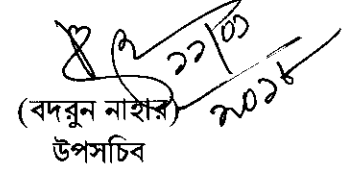 ২২/০১
২০১৮
(বদরুন নাহার)
উপসচিব